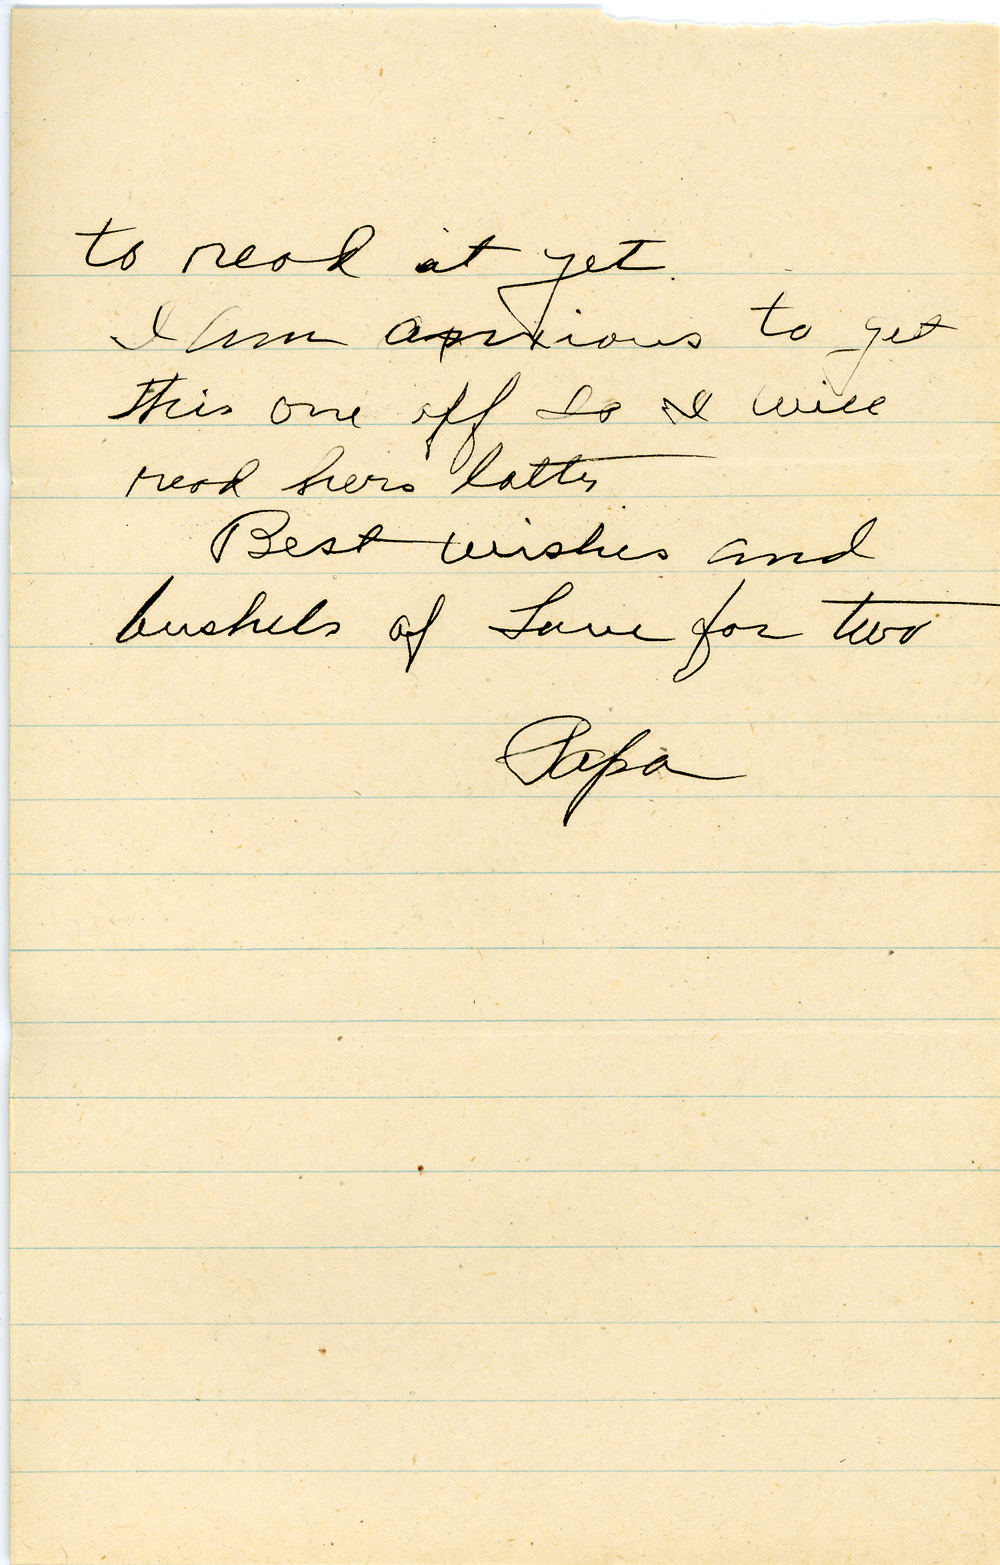 to read it yet.
I am anxious to get
this one off So I will
read hers latter
Best wishes and
bushels of Love for two
Papa